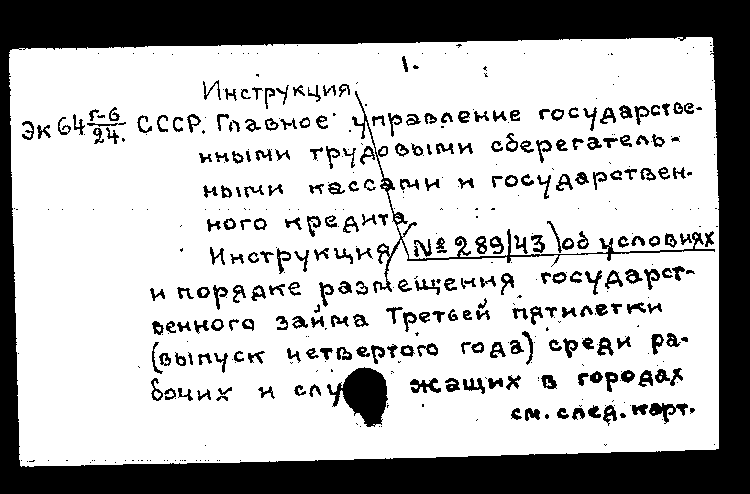 1.
Инструкция
Эк 64 г-6/24. СССР. Главное управление государстве-
нными трудовыми сберегатель-
ными кассами и государствен-
ного кредита.
Инструкция (№ 289/43) об условиях
и порядке размещения государст-
венного займа Третьей пятилетки
(выпуск четвертого года) среди ра-
бочих и слу жащих в городах
см. след. карт.